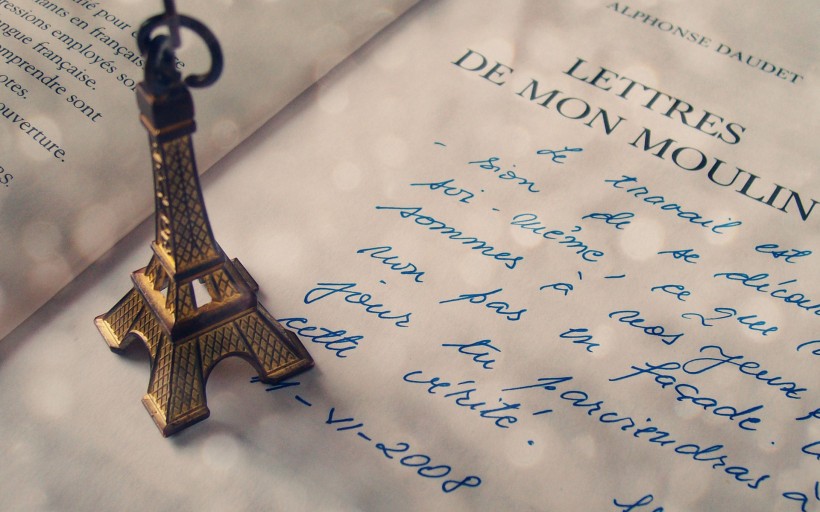 pour
ants en français
ressions employés
ngue française.
omprendre sont
ores.
ouverture.
ALPHONSE DAUDET
LETTRES
DE MON MOULIN
Le travail est
- sion de se décou
soi-même, ce que
sommes à nos yeux
non pas en façade.
jour tu parviendras à
cette vérité.
11-VI-2008